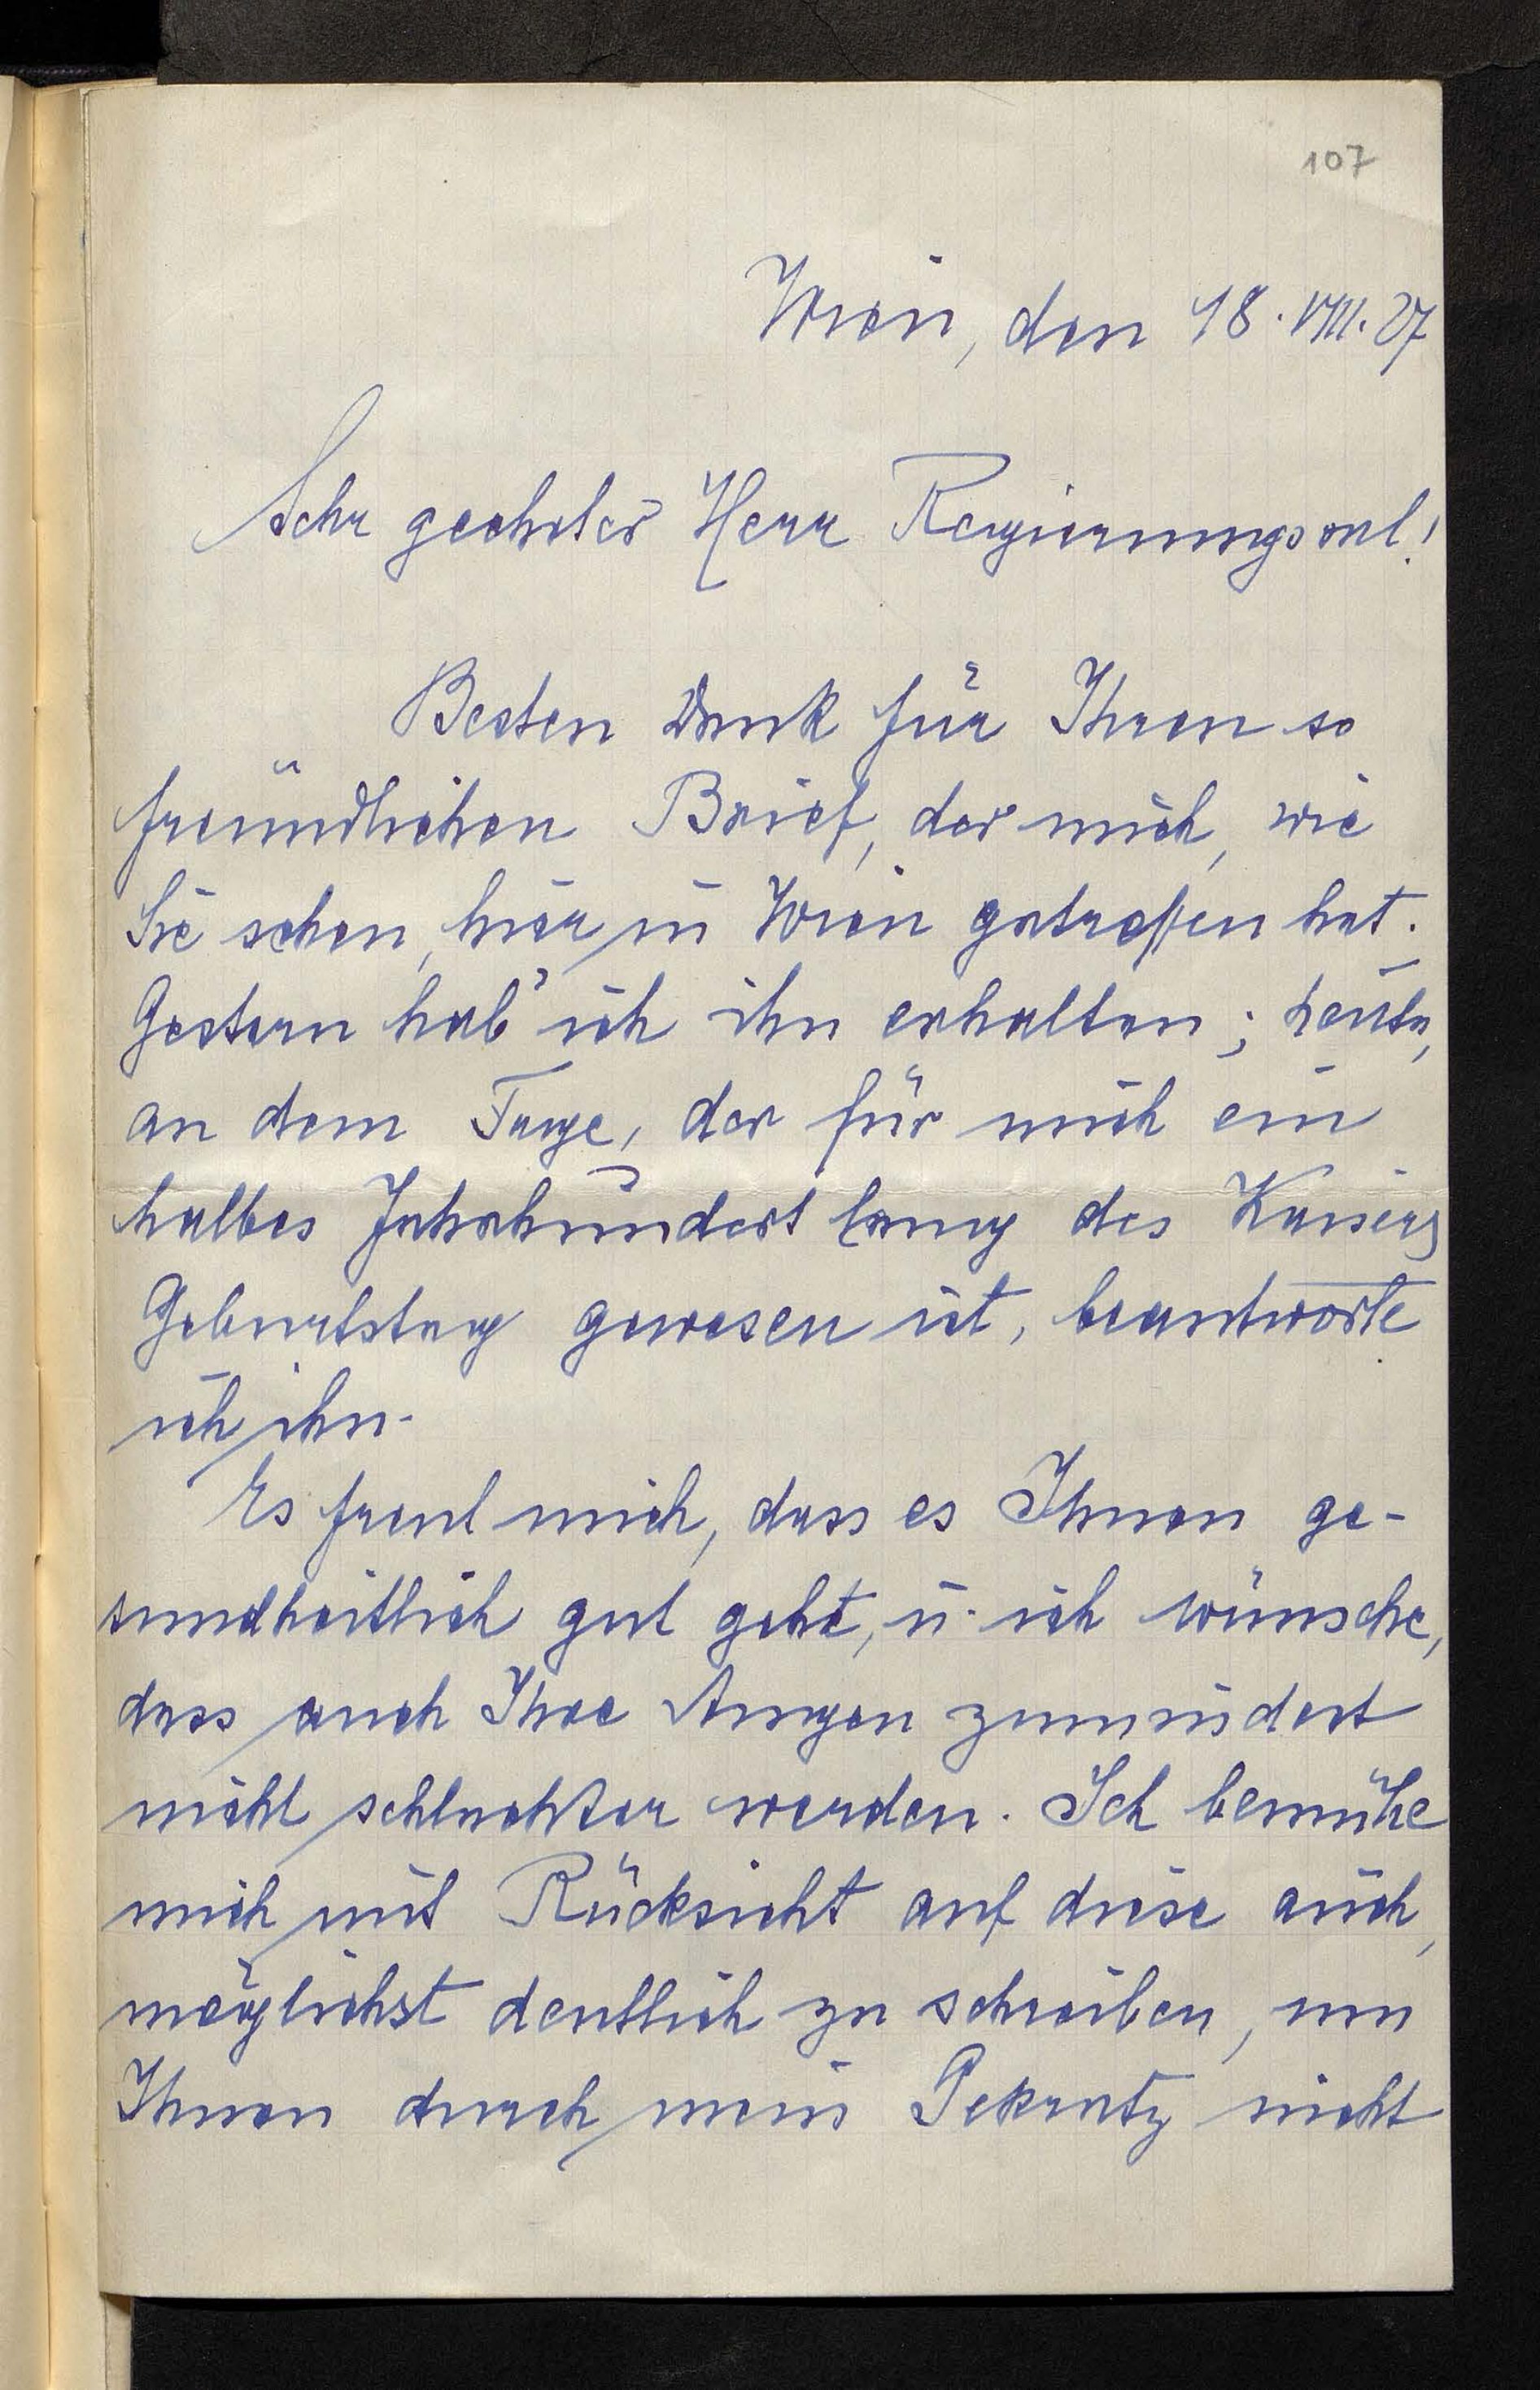 107
Wien, den 18. VIII. 27
Sehr geehrter Herr Regierungsrat!
Besten Dank für Ihren so
freundlichen Brief, der mich, wie
Sie sehen, hier in Wien getroffen hat.
Gestern hab' ich ihn erhalten; heute,
an dem Tage, der für mich ein
halbes Jahrhundert lang des Kaisers
Geburtstag gewesen ist, beantworte
ich ihn.
Es freut mich, dass es Ihnen ge-
sundheitlich gut geht, u. ich wünsche,
dass auch Ihre Augen zumindest
nicht schlechter werden. Ich bemühe
mich mit Rücksicht auf diese auch,
möglichst deutlich zu schreiben, um
Ihnen durch mein Gekratz nicht